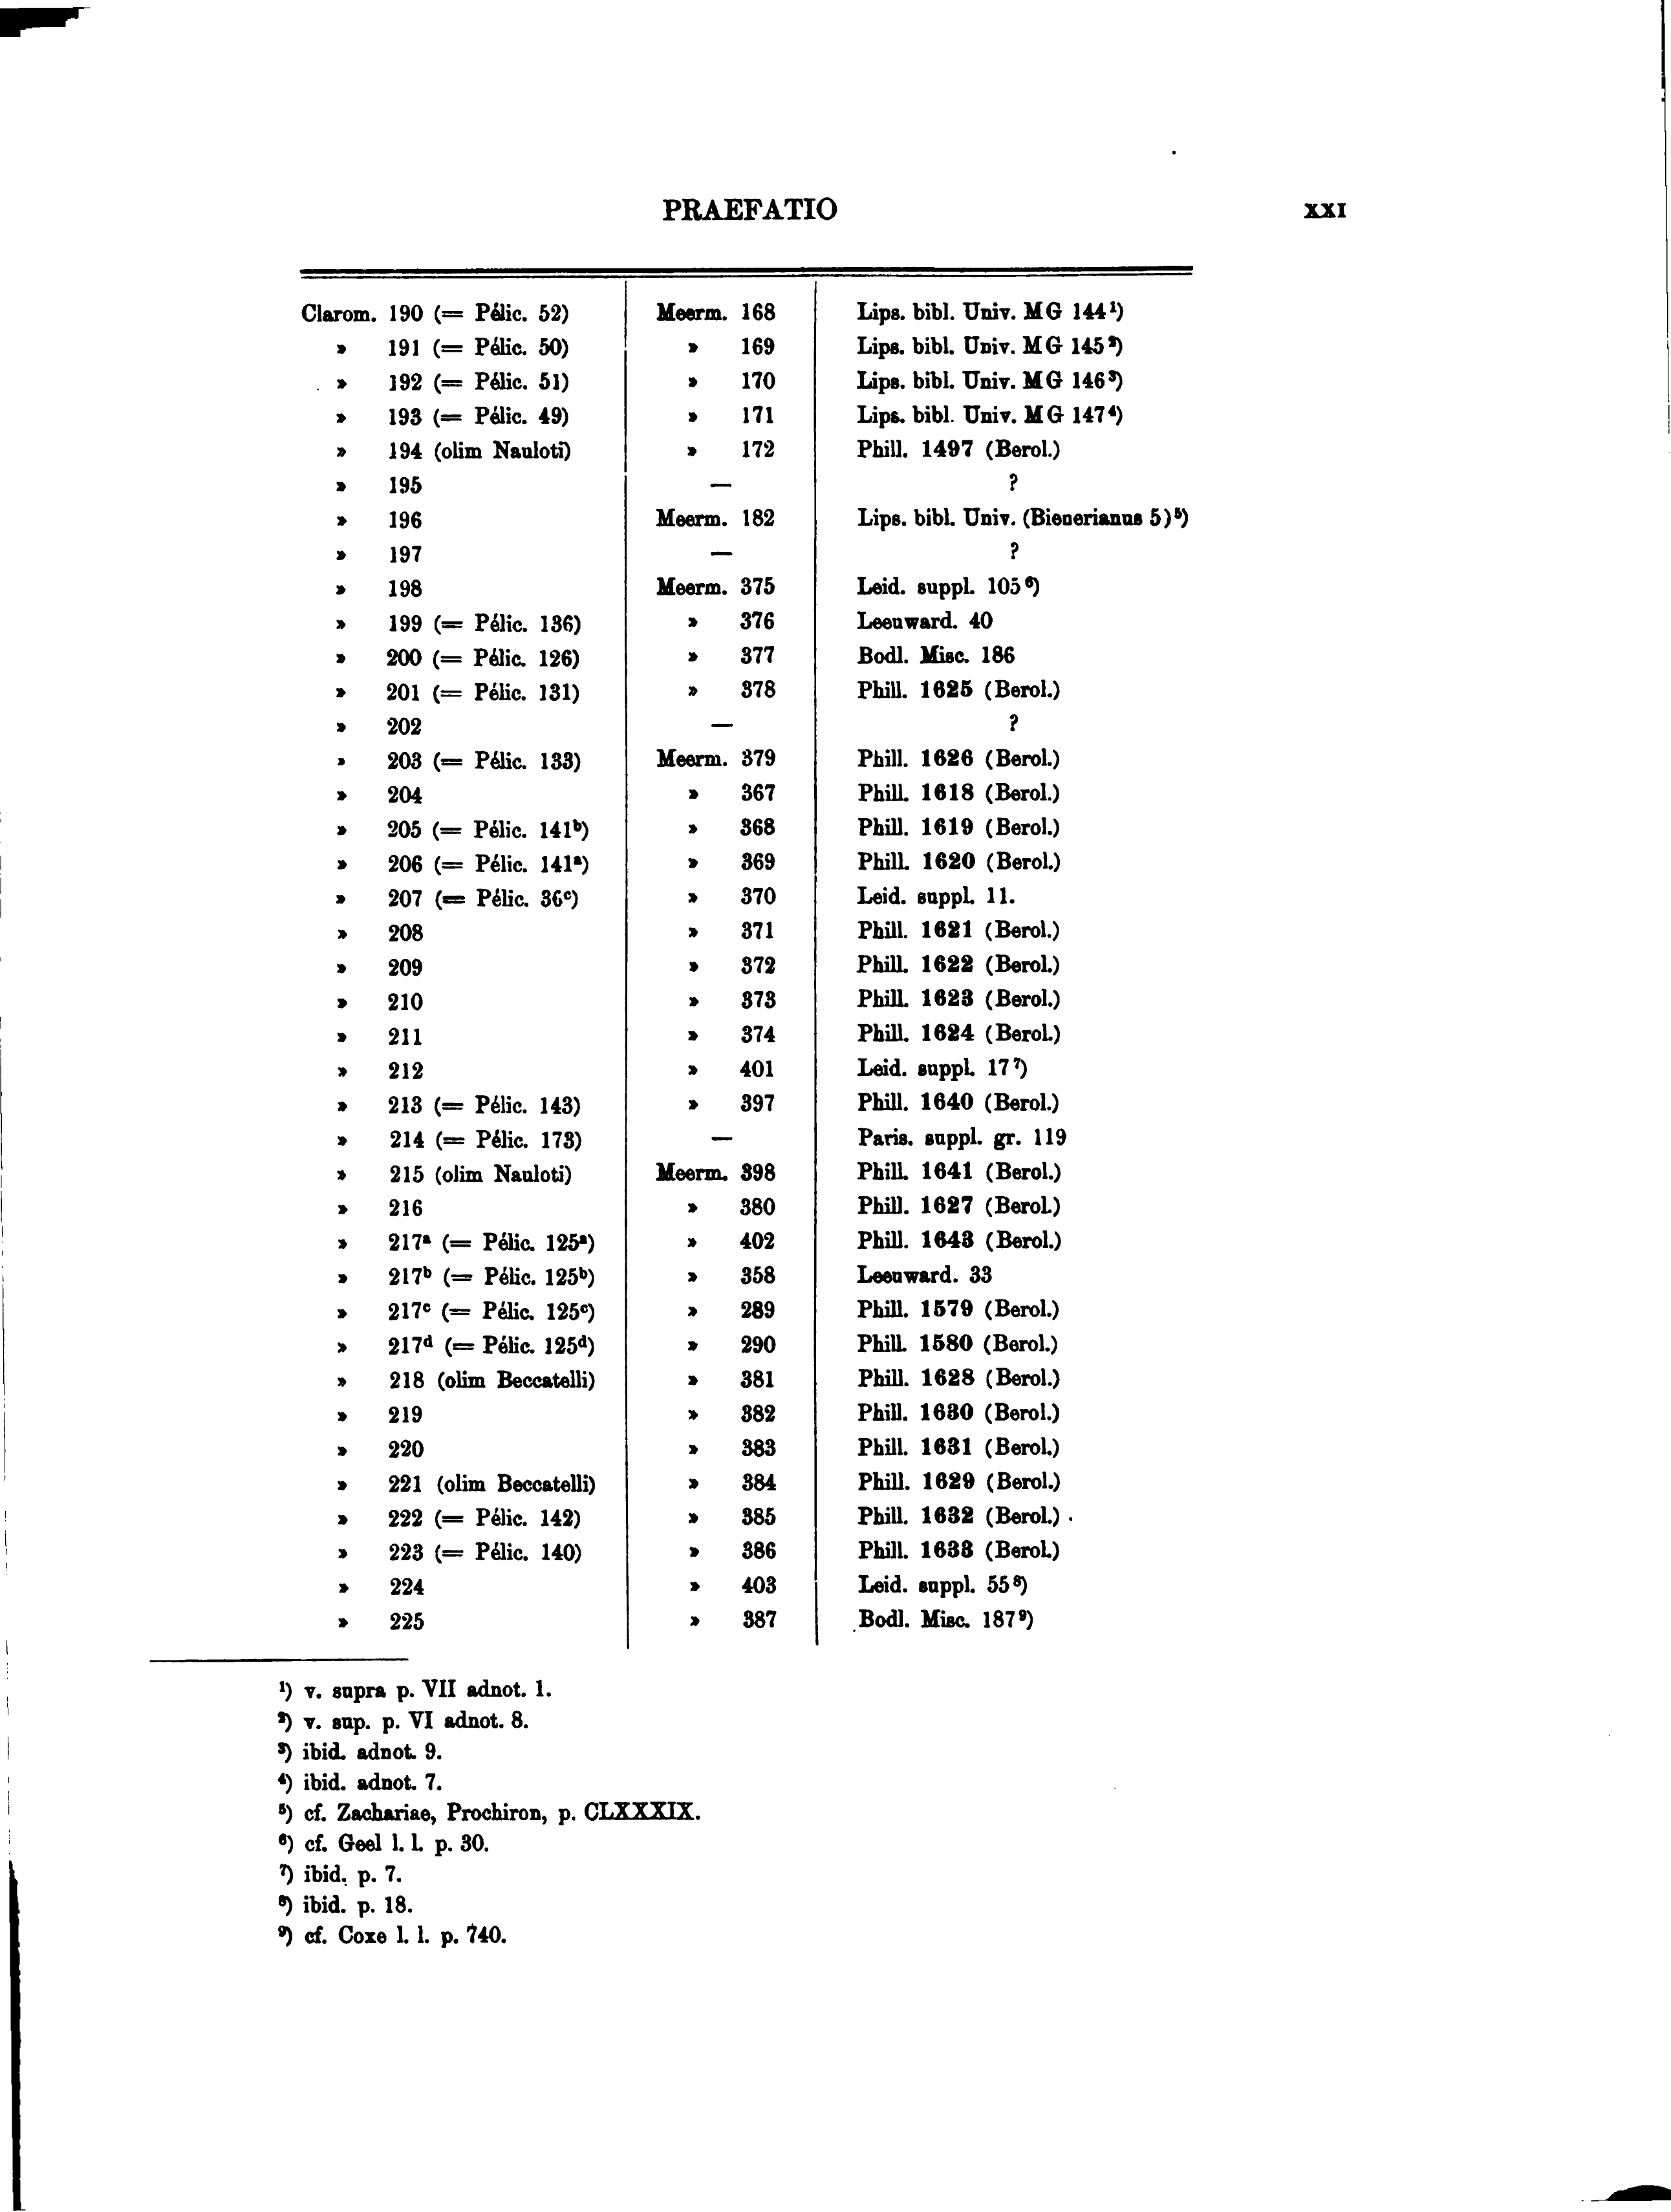 PRAEFATIO XXI
Clarom. 190 (= Pélic. 52) Meerm. 168 Lips. bibl. Univ. MG 144¹)
» 191 (= Pélic. 50) » 169 Lips. bibl. Univ. MG 145²)
» 192 (= Pélic. 51) » 170 Lips. bibl. Univ. MG 146³)
» 193 (= Pélic. 49) » 171 Lips. bibl. Univ. MG 147⁴)
» 194 (olim Nauloti) » 172 Phill. 1497 (Berol.)
» 195 — ?
» 196 Meerm. 182 Lips. bibl. Univ. (Bienerianus 5)⁵)
» 197 — ?
» 198 Meerm. 375 Leid. suppl. 105⁶)
» 199 (= Pélic. 136) » 376 Leeuward. 40
» 200 (= Pélic. 126) » 377 Bodl. Misc. 186
» 201 (= Pélic. 131) » 378 Phill. 1625 (Berol.)
» 202 — ?
» 203 (= Pélic. 133) Meerm. 379 Phill. 1626 (Berol.)
» 204 » 367 Phill. 1618 (Berol.)
» 205 (= Pélic. 141ᵇ) » 368 Phill. 1619 (Berol.)
» 206 (= Pélic. 141ᵃ) » 369 Phill. 1620 (Berol.)
» 207 (= Pélic. 36ᶜ) » 370 Leid. suppl. 11.
» 208 » 371 Phill. 1621 (Berol.)
» 209 » 372 Phill. 1622 (Berol.)
» 210 » 373 Phill. 1623 (Berol.)
» 211 » 374 Phill. 1624 (Berol.)
» 212 » 401 Leid. suppl. 17⁷)
» 213 (= Pélic. 143) » 397 Phill. 1640 (Berol.)
» 214 (= Pélic. 173) — Paris. suppl. gr. 119
» 215 (olim Nauloti) Meerm. 398 Phill. 1641 (Berol.)
» 216 » 380 Phill. 1627 (Berol.)
» 217ᵃ (= Pélic. 125ᵃ) » 402 Phill. 1643 (Berol.)
» 217ᵇ (= Pélic. 125ᵇ) » 358 Leeuward. 33
» 217ᶜ (= Pélic. 125ᶜ) » 289 Phill. 1579 (Berol.)
» 217ᵈ (= Pélic. 125ᵈ) » 290 Phill. 1580 (Berol.)
» 218 (olim Beccatelli) » 381 Phill. 1628 (Berol.)
» 219 » 382 Phill. 1630 (Berol.)
» 220 » 383 Phill. 1631 (Berol.)
» 221 (olim Beccatelli) » 384 Phill. 1629 (Berol.)
» 222 (= Pélic. 142) » 385 Phill. 1632 (Berol.)
» 223 (= Pélic. 140) » 386 Phill. 1633 (Berol.)
» 224 » 403 Leid. suppl. 55⁸)
» 225 » 387 Bodl. Misc. 187⁹)
¹) v. supra p. VII adnot. 1.
²) v. sup. p. VI adnot. 8.
³) ibid. adnot. 9.
⁴) ibid. adnot. 7.
⁵) cf. Zachariae, Prochiron, p. CLXXXIX.
⁶) cf. Geel l. l. p. 30.
⁷) ibid. p. 7.
⁸) ibid. p. 18.
⁹) cf. Coxe l. l. p. 740.